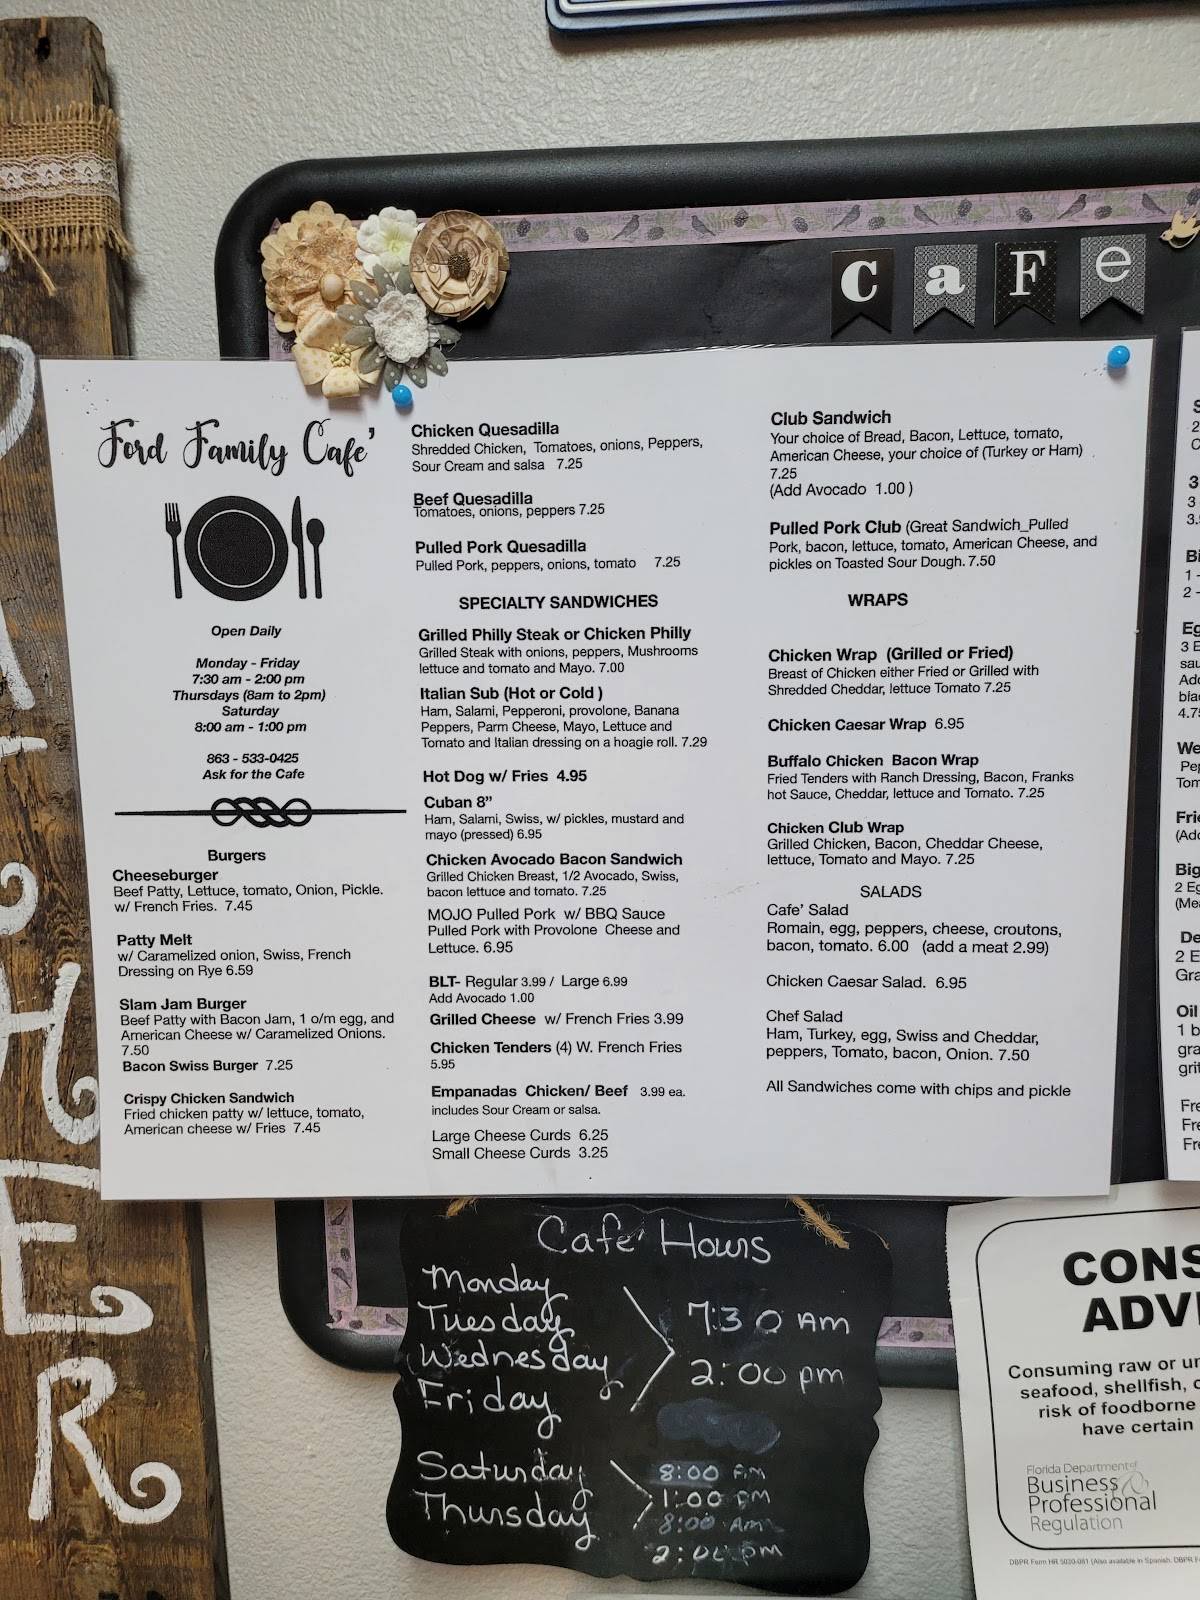 C a F e
Ford Family Cafe'
Open Daily
Monday - Friday
7:30 am - 2:00 pm
Thursdays (8am to 2pm)
Saturday
8:00 am - 1:00 pm
863 - 533-0425
Ask for the Cafe
Burgers
Cheeseburger
Beef Patty, Lettuce, tomato, Onion, Pickle.
w/ French Fries. 7.45
Patty Melt
w/ Caramelized onion, Swiss, French
Dressing on Rye 6.59
Slam Jam Burger
Beef Patty with Bacon Jam, 1 o/m egg, and
American Cheese w/ Caramelized Onions.
7.50
Bacon Swiss Burger 7.25
Crispy Chicken Sandwich
Fried chicken patty w/ lettuce, tomato,
American cheese w/ Fries 7.45
Chicken Quesadilla
Shredded Chicken, Tomatoes, onions, Peppers,
Sour Cream and salsa 7.25
Beef Quesadilla
Tomatoes, onions, peppers 7.25
Pulled Pork Quesadilla
Pulled Pork, peppers, onions, tomato 7.25
SPECIALTY SANDWICHES
Grilled Philly Steak or Chicken Philly
Grilled Steak with onions, peppers, Mushrooms
lettuce and tomato and Mayo. 7.00
Italian Sub (Hot or Cold )
Ham, Salami, Pepperoni, provolone, Banana
Peppers, Parm Cheese, Mayo, Lettuce and
Tomato and Italian dressing on a hoagie roll. 7.29
Hot Dog w/ Fries 4.95
Cuban 8"
Ham, Salami, Swiss, w/ pickles, mustard and
mayo (pressed) 6.95
Chicken Avocado Bacon Sandwich
Grilled Chicken Breast, 1/2 Avocado, Swiss,
bacon lettuce and tomato. 7.25
MOJO Pulled Pork w/ BBQ Sauce
Pulled Pork with Provolone Cheese and
Lettuce. 6.95
BLT- Regular 3.99 / Large 6.99
Add Avocado 1.00
Grilled Cheese w/ French Fries 3.99
Chicken Tenders (4) W. French Fries
5.95
Empanadas Chicken/ Beef 3.99 ea.
includes Sour Cream or salsa.
Large Cheese Curds 6.25
Small Cheese Curds 3.25
Club Sandwich
Your choice of Bread, Bacon, Lettuce, tomato,
American Cheese, your choice of (Turkey or Ham)
7.25
(Add Avocado 1.00 )
Pulled Pork Club (Great Sandwich_Pulled
Pork, bacon, lettuce, tomato, American Cheese, and
pickles on Toasted Sour Dough. 7.50
WRAPS
Chicken Wrap (Grilled or Fried)
Breast of Chicken either Fried or Grilled with
Shredded Cheddar, lettuce Tomato 7.25
Chicken Caesar Wrap 6.95
Buffalo Chicken Bacon Wrap
Fried Tenders with Ranch Dressing, Bacon, Franks
hot Sauce, Cheddar, lettuce and Tomato. 7.25
Chicken Club Wrap
Grilled Chicken, Bacon, Cheddar Cheese,
lettuce, Tomato and Mayo. 7.25
SALADS
Cafe' Salad
Romain, egg, peppers, cheese, croutons,
bacon, tomato. 6.00 (add a meat 2.99)
Chicken Caesar Salad. 6.95
Chef Salad
Ham, Turkey, egg, Swiss and Cheddar,
peppers, Tomato, bacon, Onion. 7.50
All Sandwiches come with chips and pickle
Cafe' Hours
Monday
Tuesday
Wednesday
Friday
7:30 AM
2:00 pm
Saturday
Thursday
8:00 AM
1:00 PM
8:00 AM
2:00 PM
CONS
ADV
Consuming raw or un
seafood, shellfish,
risk of foodborne
have certain
Florida Department of
Business &
Professional
Regulation
DBPR Form HR 5030-081 (Also available in Spanish, DBPR F